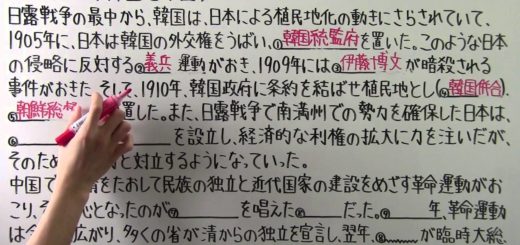 日露戦争の最中から、韓国は、日本による植民地化の動きにさらされていて、
1905年に、日本は韓国の外交権をうばい、①韓国統監府を置いた。このような日本
の侵略に反対する②義兵運動がおき、1909年には③伊藤博文が暗殺される
事件がおきた。そして、1910年、韓国政府に条約を結ばせ植民地とし(④韓国併合)、
⑤朝鮮総 置した。また、日露戦争で南満州での勢力を確保した日本は、
を設立し、経済的な利権の拡大に力を注いだが、
そのため と対立するようになっていった。
中国で をたおして民族の独立と近代国家の建設をめざす革命運動がお
こり、そ 心となったのが⑦ を唱えた だった。 年、革命運動
は 広がり、多くの省が清からの独立を宣言し、翌年、 が臨時大総